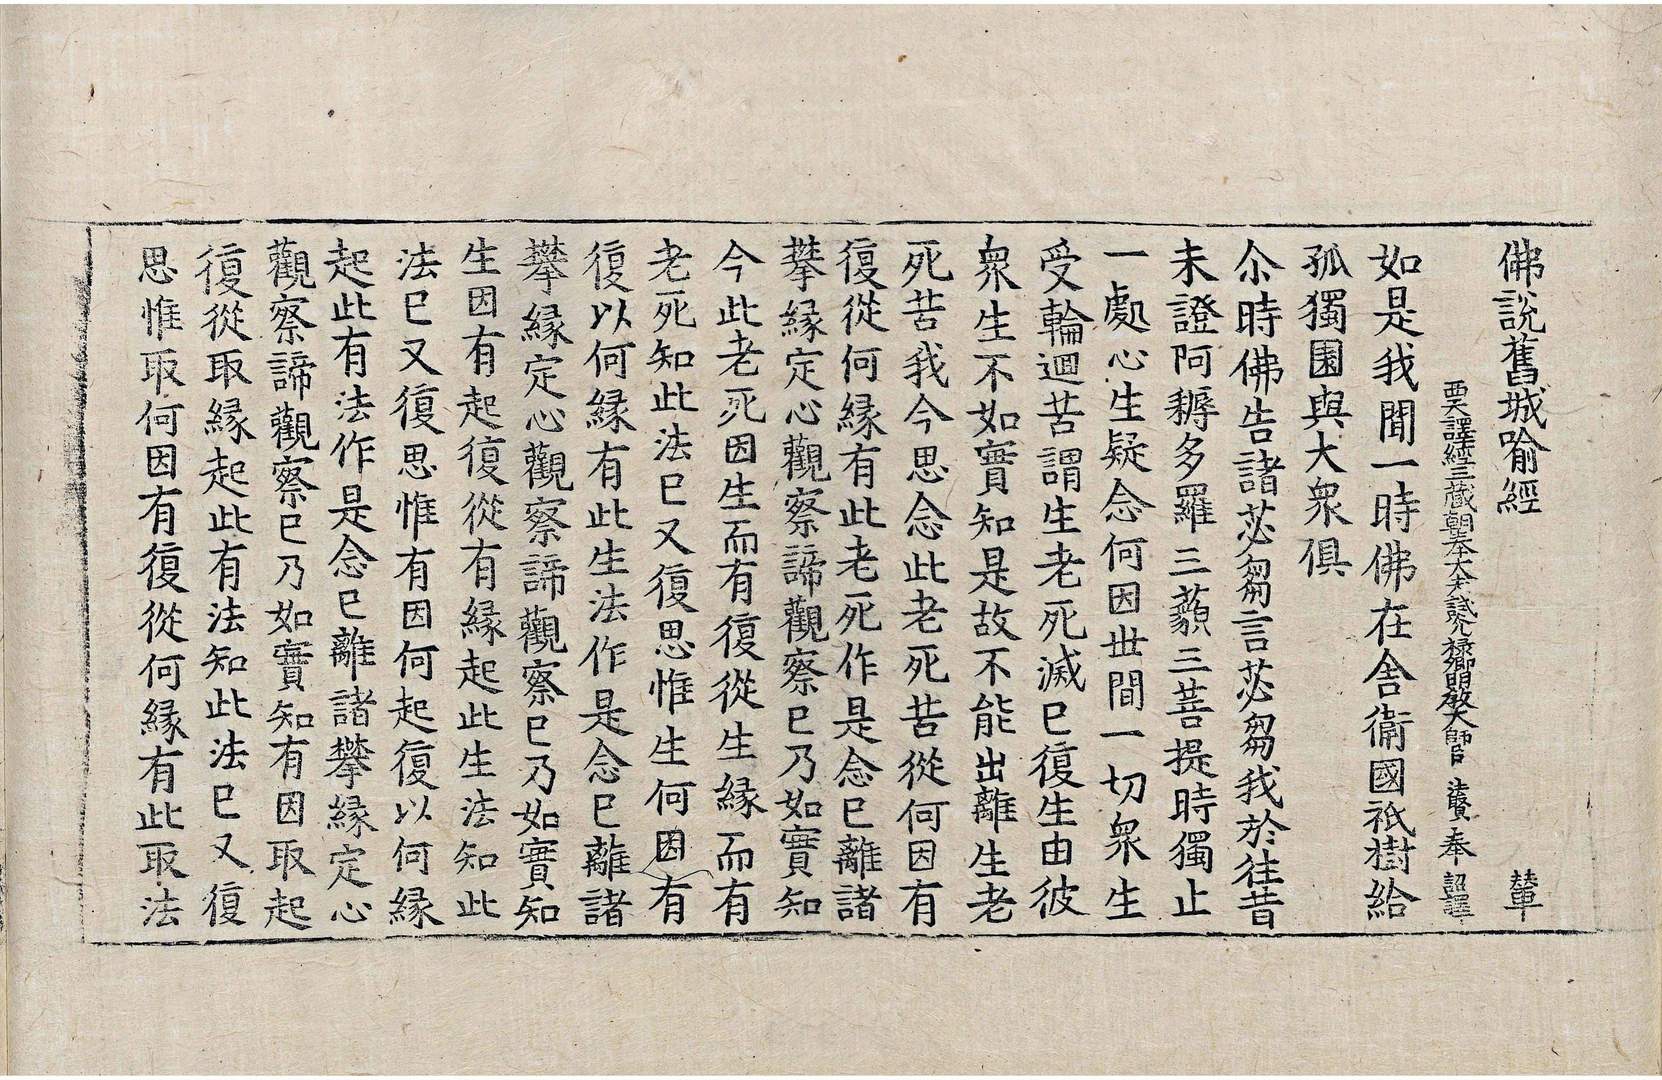 佛說舊城喻經 輦
西天譯經三藏朝奉大夫試光祿卿明教大師臣 法賢 奉 詔譯
如是我聞一時佛在舍衛國祇樹給
孤獨園與大衆俱
尒時佛告諸苾芻言苾芻我於往昔
未證阿耨多羅三藐三菩提時獨止
一處心生疑念何因世間一切衆生
受輪迴苦謂生老死滅已復生由彼
衆生不如實知是故不能出離生老
死苦我今思念此老死苦從何因有
復從何緣有此老死作是念已離諸
攀緣定心觀察諦觀察已乃如實知
今此老死因生而有復從生緣而有
老死知此法已又復思惟生何因有
復以何緣有此生法作是念已離諸
攀緣定心觀察諦觀察已乃如實知
生因有起復從有緣起此生法知此
法已又復思惟有因何起復以何緣
起此有法作是念已離諸攀緣定心
觀察諦觀察已乃如實知有因取起
復從取緣起此有法知此法已又復
思惟取何因有復從何緣有此取法